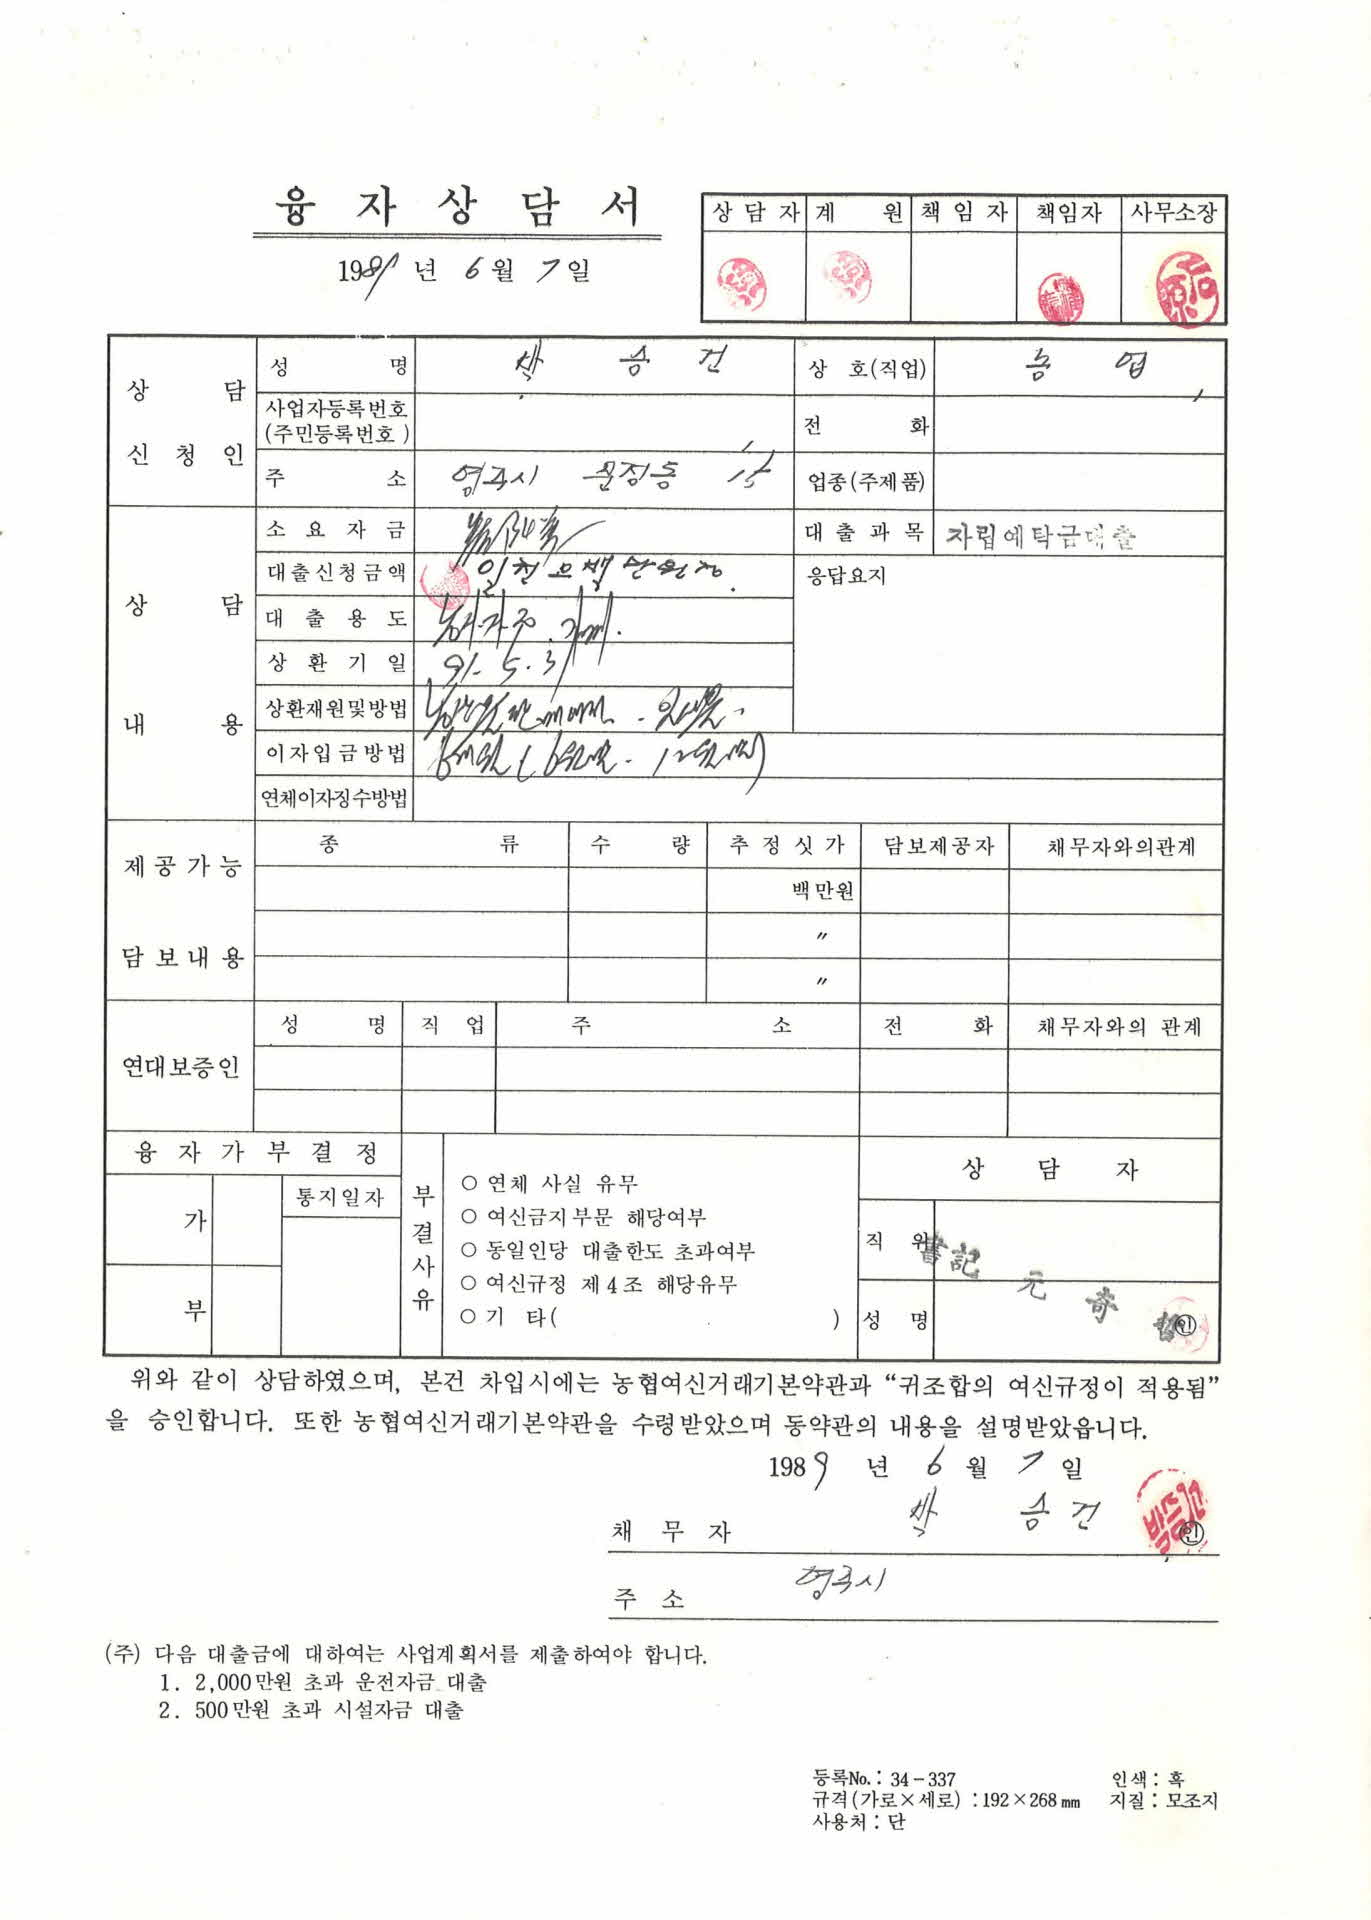 융 자 상 담 서
1989 년 6 월 7 일
상 담 자 계 원 책 임 자 책임자 사무소장
상 담 신 청 인
성 명 박 승 건 상 호(직업) 농 업
사업자등록번호
(주민등록번호 )
전 화
주 소 영주시 문정동 업종(주제품)
상 담 내 용
소 요 자 금 대 출 과 목 자립예탁금대출
대출신청금액 일천오백만원정. 응답요지
대 출 용 도
상 환 기 일 91. 5. 31
상환재원및방법
이자입금방법
연체이자징수방법
제 공 가 능 담 보 내 용
종 류 수 량 추 정 싯 가 담보제공자 채무자와의관계
백만원
〃
〃
연대보증인
성 명 직 업 주 소 전 화 채무자와의 관계
융 자 가 부 결 정
통지일자
가
부
부 결 사 유
○ 연체 사실 유무
○ 여신금지부문 해당여부
○ 동일인당 대출한도 초과여부
○ 여신규정 제4조 해당유무
○ 기 타( )
상 담 자
직 위 書記
성 명 元 奇 ㊞
위와 같이 상담하였으며, 본건 차입시에는 농협여신거래기본약관과 “귀조합의 여신규정이 적용됨”
을 승인합니다. 또한 농협여신거래기본약관을 수령받았으며 동약관의 내용을 설명받았읍니다.
1989 년 6 월 7 일
채 무 자 박 승 건 ㊞
주 소 영주시
(주) 다음 대출금에 대하여는 사업계획서를 제출하여야 합니다.
1. 2,000만원 초과 운전자금 대출
2. 500만원 초과 시설자금 대출
등록No. : 34-337 인색 : 흑
규격(가로×세로) : 192×268㎜ 지질 : 모조지
사용처 : 단